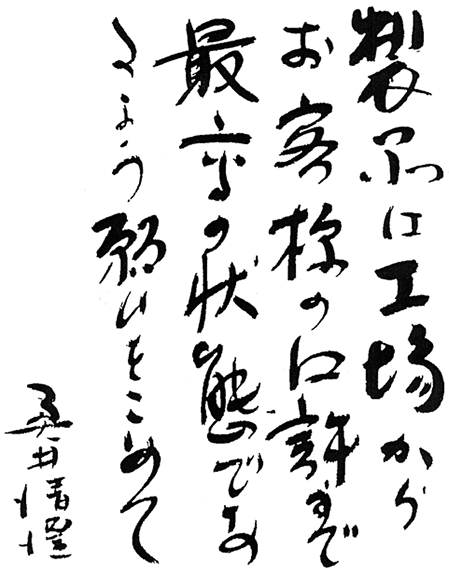 製品は工場から
お客様の口許まで
最高の状態であ
るよう願いをこめて